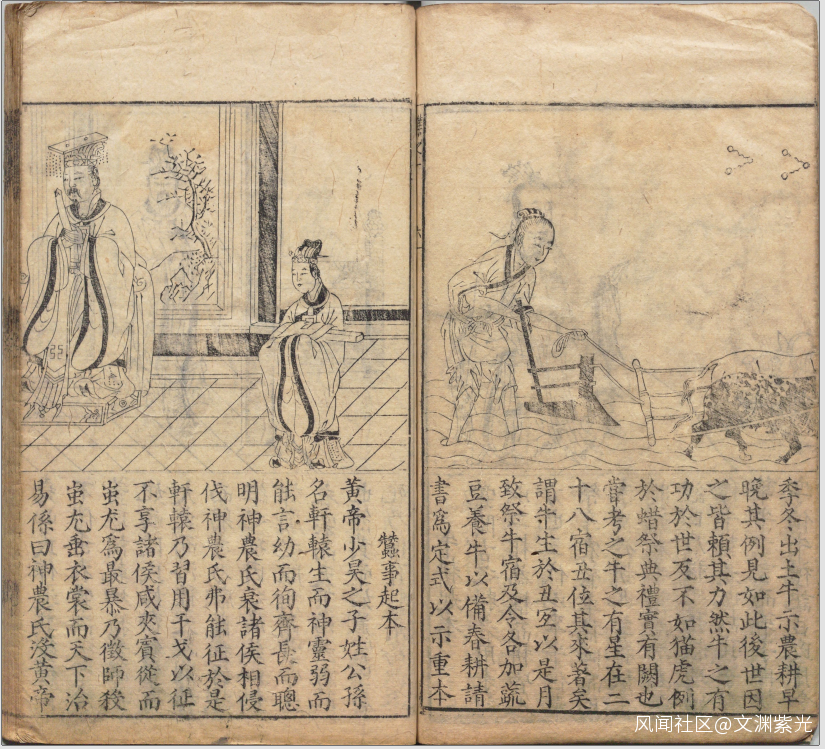 季冬出土牛示農耕早
晚其例見如此後世因
之皆賴其力然牛之有
功於世反不如猫虎例
於蜡祭典禮實有闕也
嘗考之牛之有星在二
十八宿丑位其來著矣
謂牛生於丑宜以是月
致祭牛宿及令各加蔬
豆養牛以備春耕請
書爲定式以示重本
蠶事起本
黃帝少昊之子姓公孫
名軒轅生而神靈弱而
能言幼而徇齊長而聰
明神農氏衰諸侯相侵
伐神農氏弗能征於是
軒轅乃習用干戈以征
不享諸侯咸來賓從而
蚩尤爲最暴乃徵師殺
蚩尤垂衣裳而天下治
易係曰神農氏沒黃帝
风闻社区@文渊紫光